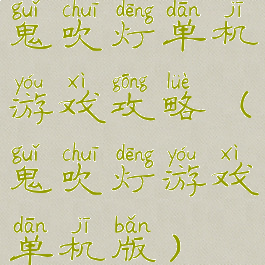 guǐ chuī dēng dān jī
鬼吹灯单机
yóu xì gōng lüè
游戏攻略（
guǐ chuī dēng yóu xì
鬼吹灯游戏
dān jī bǎn
单机版）